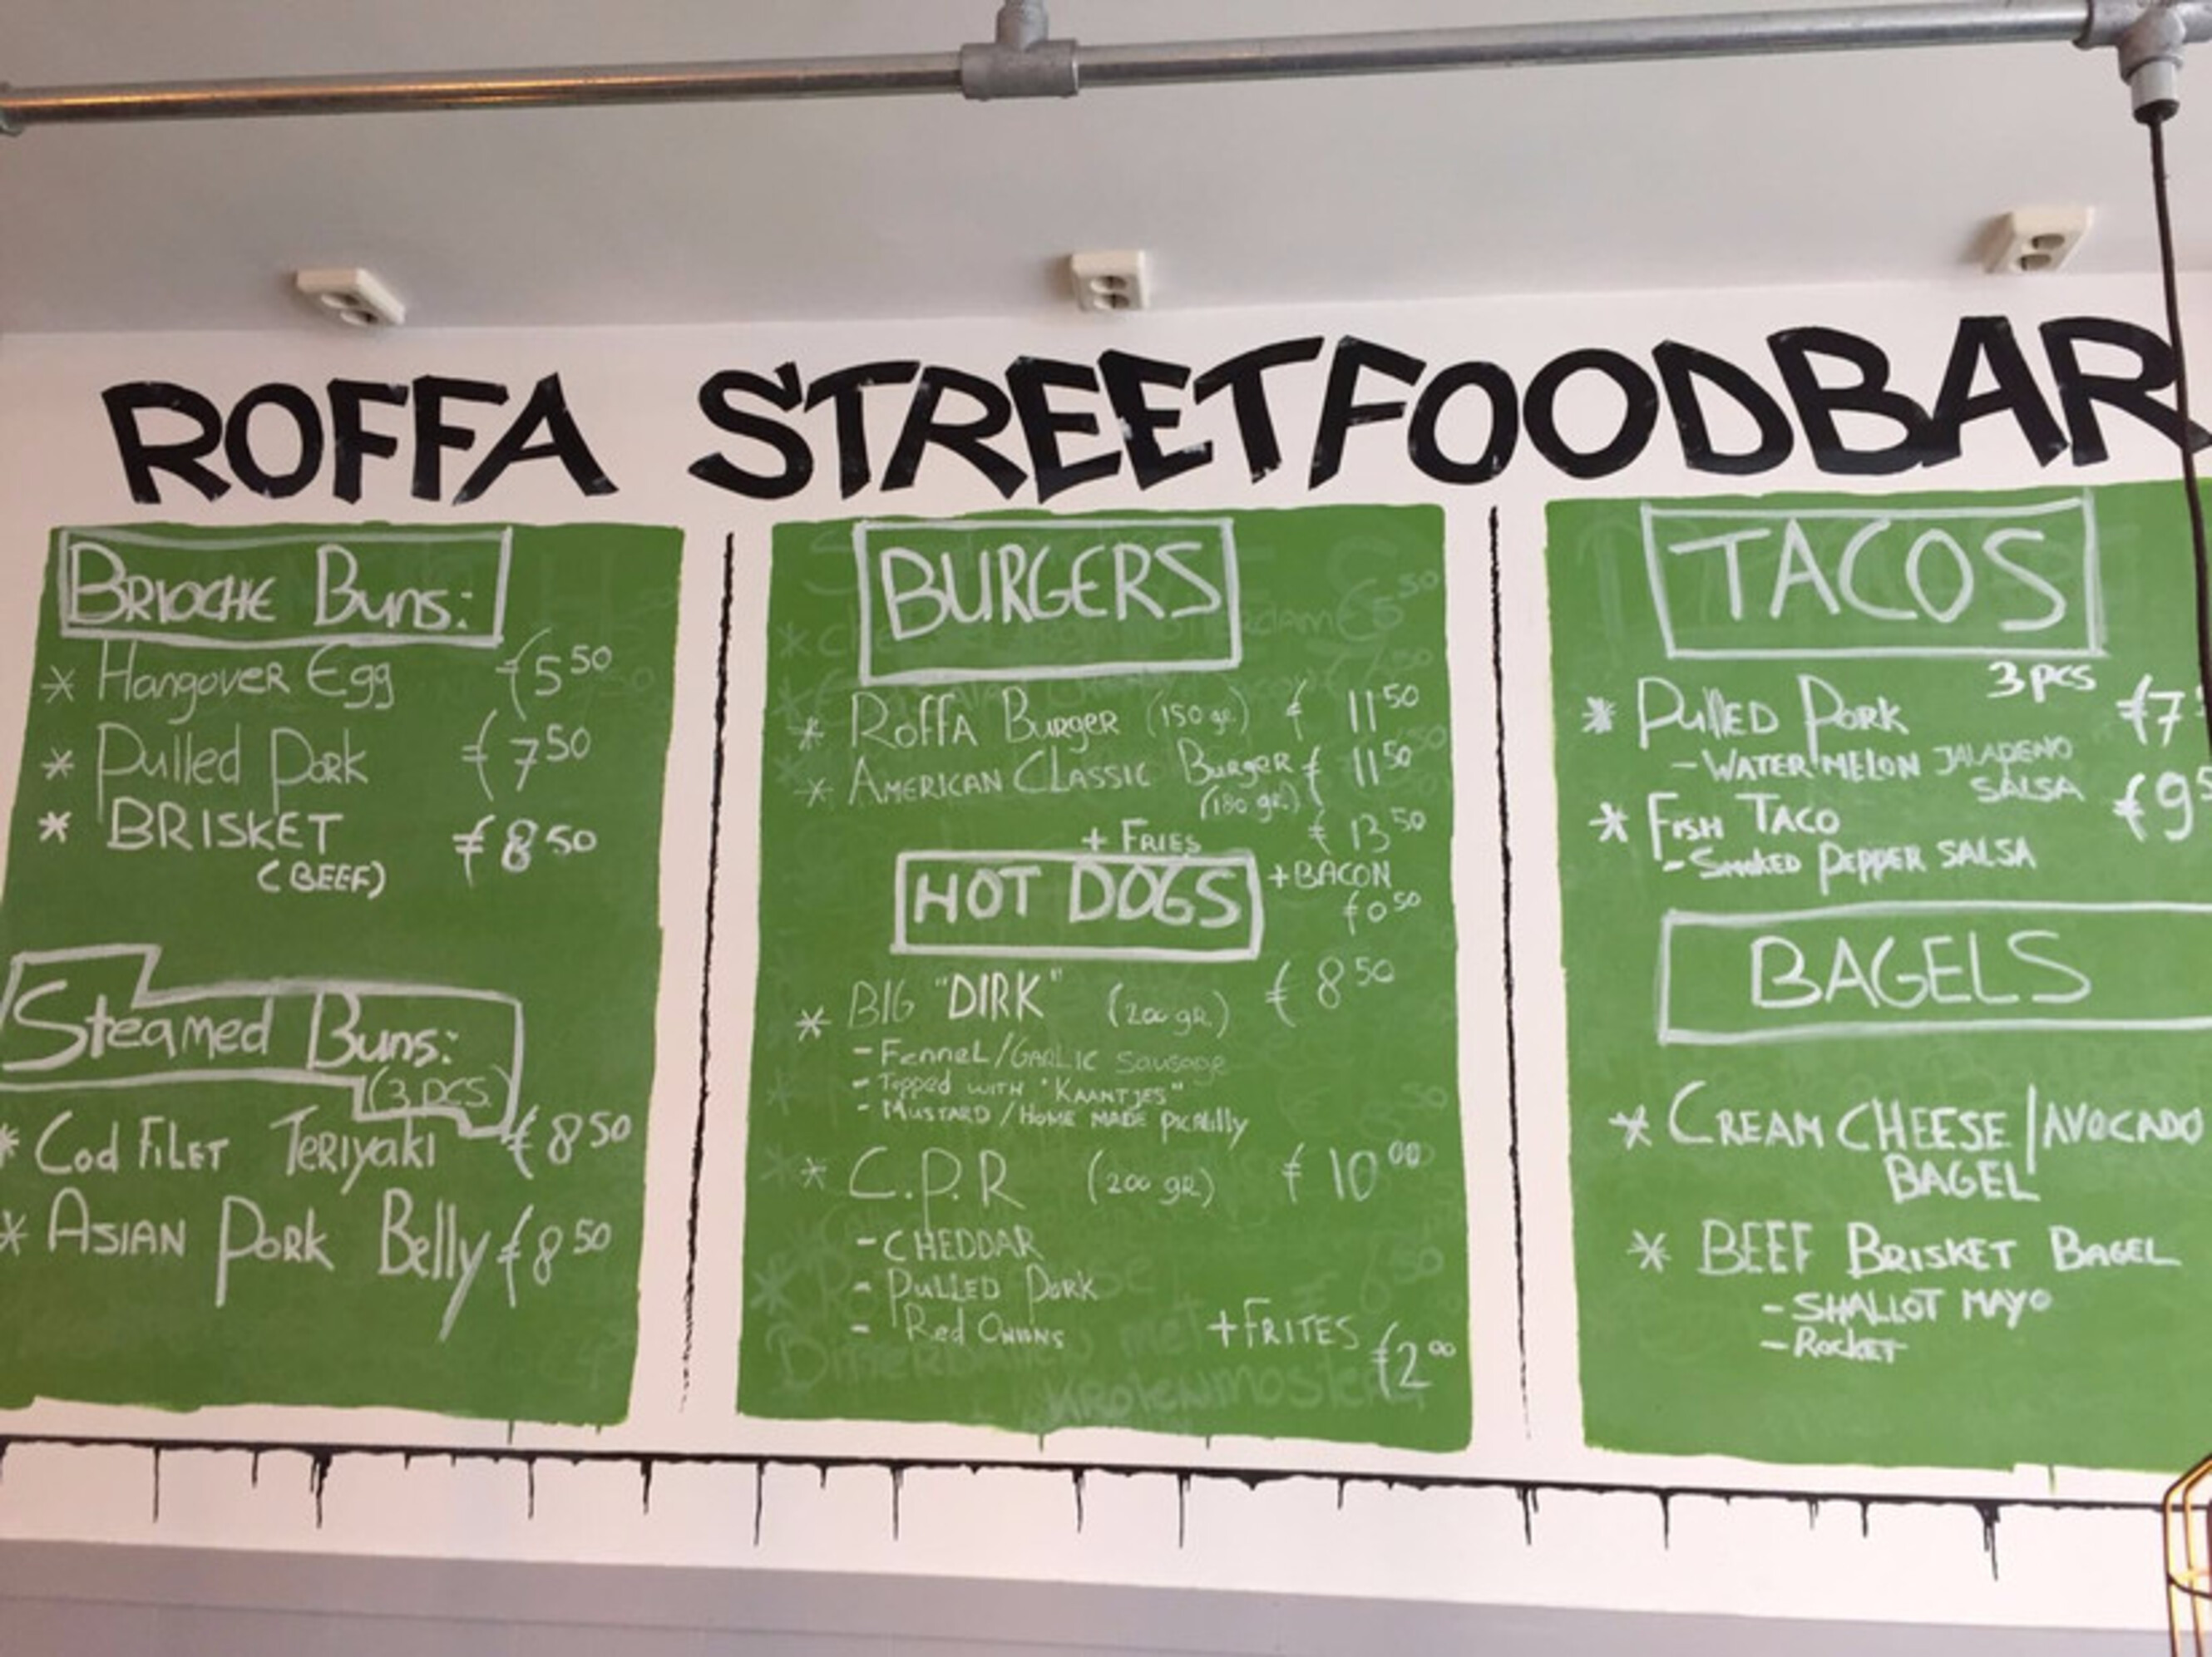 ROFFA STREETFOODBAR
BRIOCHE BUNS:
* HANGOVER EGG €5 50
* Pulled Pork €7 50
* BRISKET €8 50
(BEEF)
Steamed Buns:
(3 pcs.)
* Cod FiLET TERIYAKI €8 50
* ASIAN PORK Belly €8 50
BURGERS
* ROFFA BURGER (150 gr.) € 11 50
* AMERICAN CLASSIC BURGER € 11 50
(180 gr.)
+ FRIES € 13 50
+BACON
€0 50
HOT DOGS
* BIG "DIRK" (200 gR.) € 8 50
- FenneL/GARLIC SAUSAGE
- Topped WITH "KAANTJES"
- MUSTARD / HOME MADE PICALILLY
* C.P.R (200 gR.) € 10 00
- CHEDDAR
- PULLED PORK
- Red ONIONS
+FRITES €2 00
TACOS
3 pcs
* PULLED PORK €7
- WATERMELON JALAPENO
SALSA
* FISH TACO €9 5
- SMOKED PEPPER SALSA
BAGELS
* CREAM CHEESE/AVOCADO
BAGEL
* BEEF BRISKET BAGEL
- SHALLOT MAYO
- ROCKET